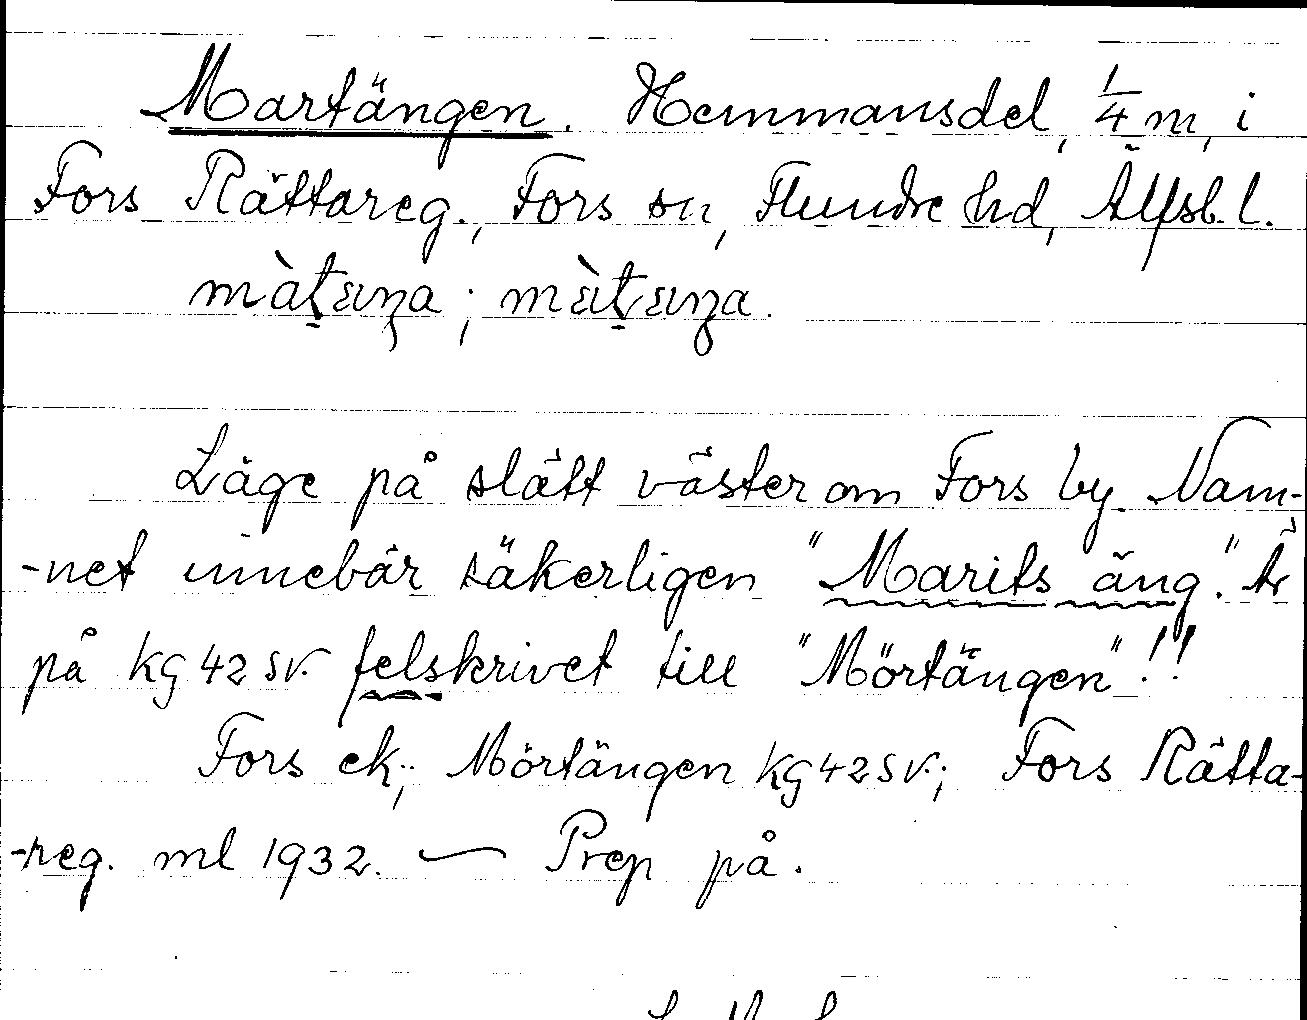 Martängen. Hemmansdel, 1/4 m, i
Fors Rättareg., Fors sn, Flundre hd, Älfsb. l.
Läge på slätt väster om Fors by. Nam-
-net innebär säkerligen "Marits äng". Är
på KG 42 SV. felskrivet till "Mörtängen"!!
Fors ek; Mörtängen KG 42 SV.; Fors Rätta-
-reg. ml 1932. — Prep på.